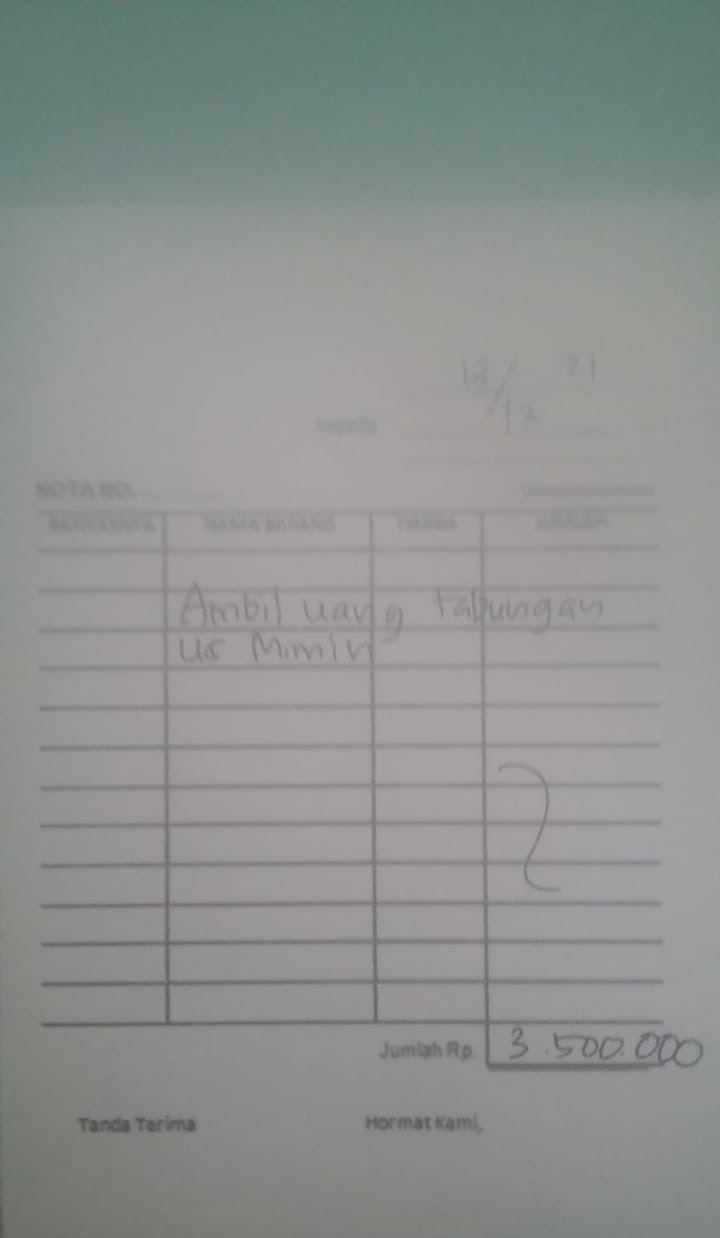 13/12 21
Kepada
NOTA NO.
BANYAKNYA NAMA BARANG HARGA JUMLAH
Ambil uang tabungan
us Mimin
Jumlah Rp. 3.500.000
Tanda Terima Hormat Kami,